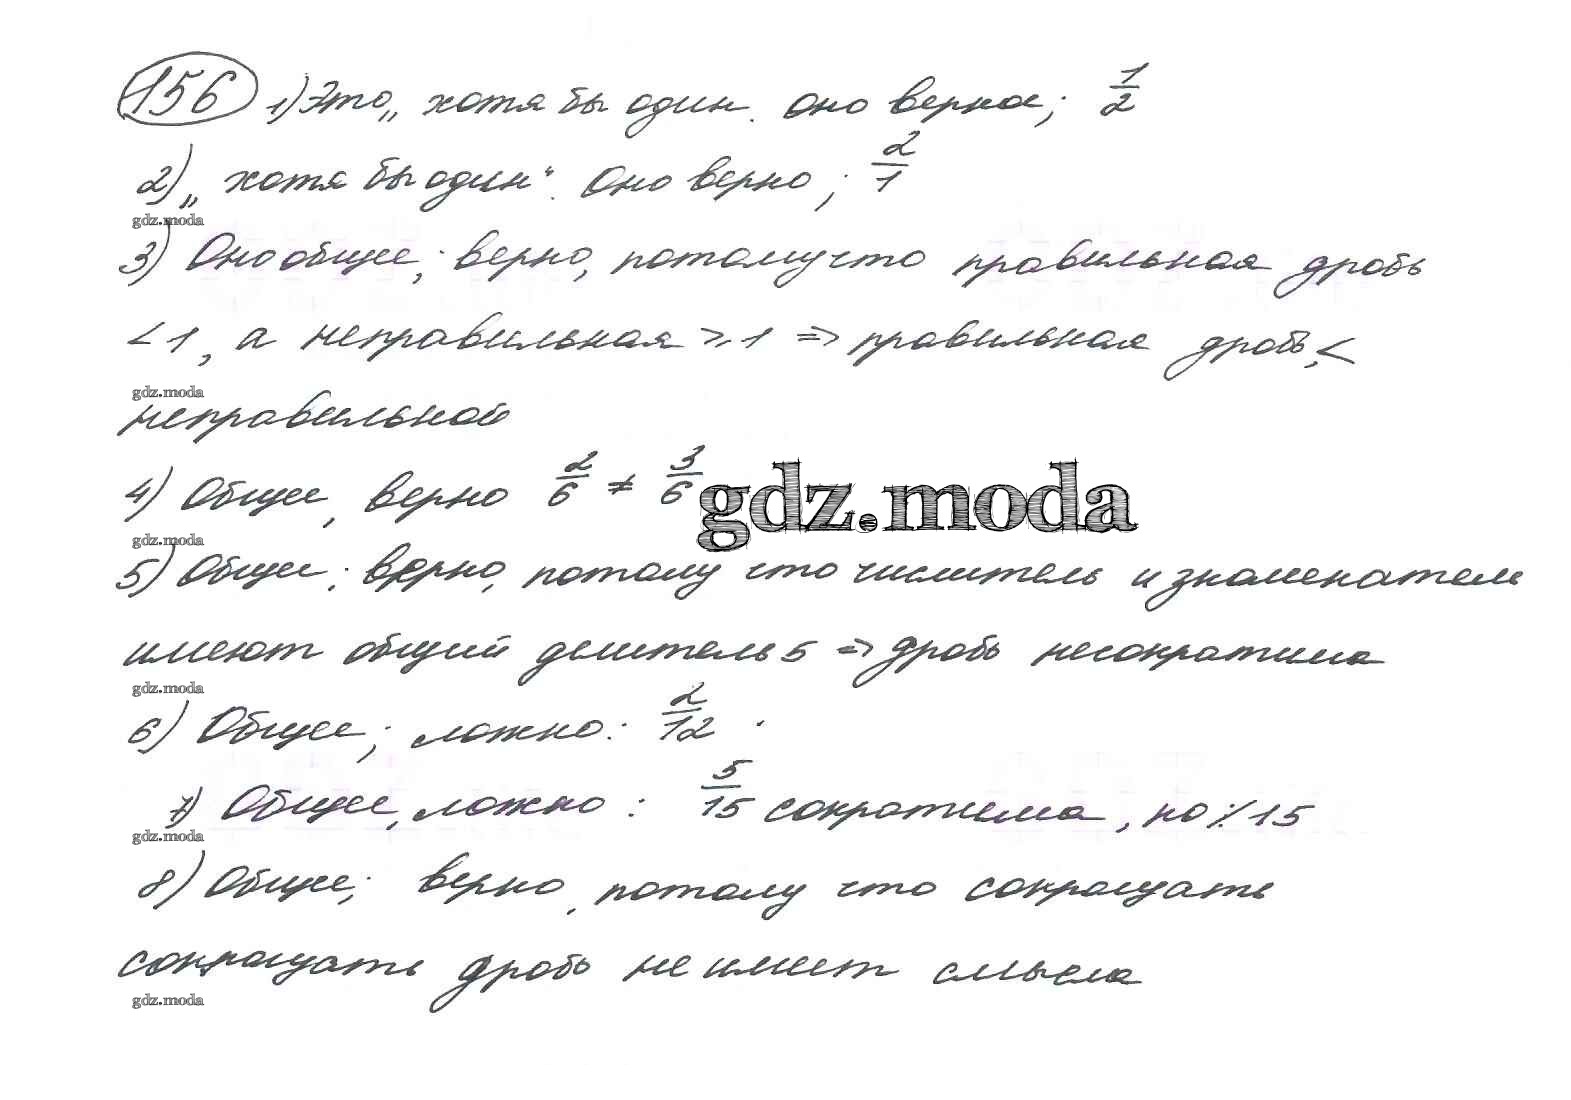 156 1) Это „хотя бы один. Оно верное; 1/2
2) „хотя бы один“. Оно верно; 2/1
gdz.moda
3) Оно общее; верно, потому что правильная дробь
< 1, а неправильная ≥ 1 => правильная дробь, <
gdz.moda
неправильной
4) Общее, верно 2/6 ≠ 3/6
gdz.moda
gdz.moda
5) Общее; верно, потому что числитель и знаменатель
имеют общий делитель 5 => дробь несократима
gdz.moda
6) Общее; ложно: 2/12.
7) Общее, ложно: 5/15 сократима, но ⁒ 15
gdz.moda
8) Общее; верно, потому что сокращать
сокращать дробь не имеет смысла
gdz.moda